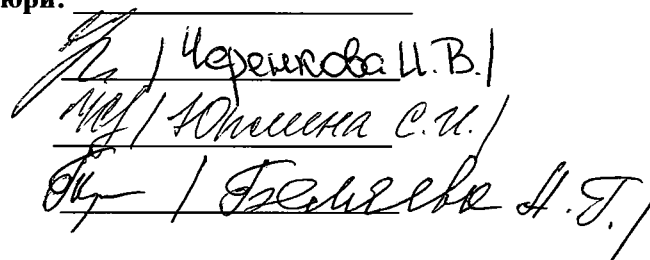 юри:
/ Черенкова И.В./
/ Юмшина С.И./
/ Беляева Н.Г./